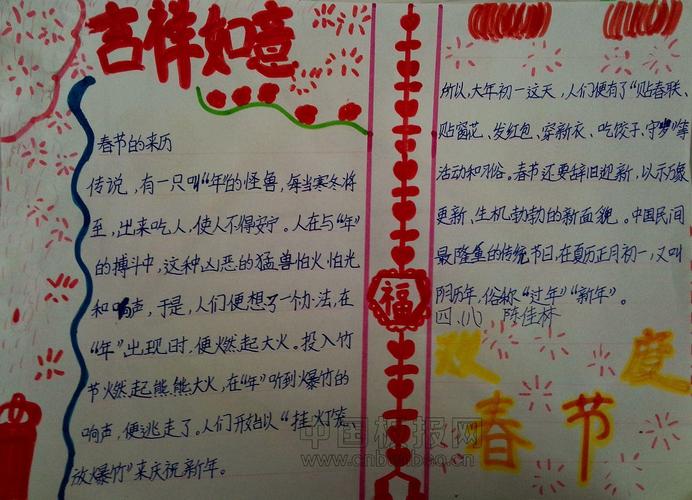 吉祥如意
春节的来历
传说，有一只叫“年”的怪兽，每当寒冬将
至，出来吃人，使人不得安宁。人在与“年”
的搏斗中，这种凶恶的猛兽怕火怕光
和响声，于是，人们便想了一个办法，在
“年”出现时，便燃起大火。投入竹
节燃起熊熊大火，在“年”听到爆竹的
响声，便逃走了。人们开始以“挂灯笼
放爆竹”来庆祝新年。
福
所以，大年初一这天，人们便有了“贴春联、
贴窗花、发红包、穿新衣、吃饺子、守岁”等
活动和习俗。春节还要辞旧迎新，以示万象
更新、生机勃勃的新面貌。中国民间
最隆重的传统节日，在夏历正月初一，又叫
阴历年，俗称“过年”“新年”。
四、（八） 陈佳林
欢度
春节
中国板报网
www.cnbanbao.cn